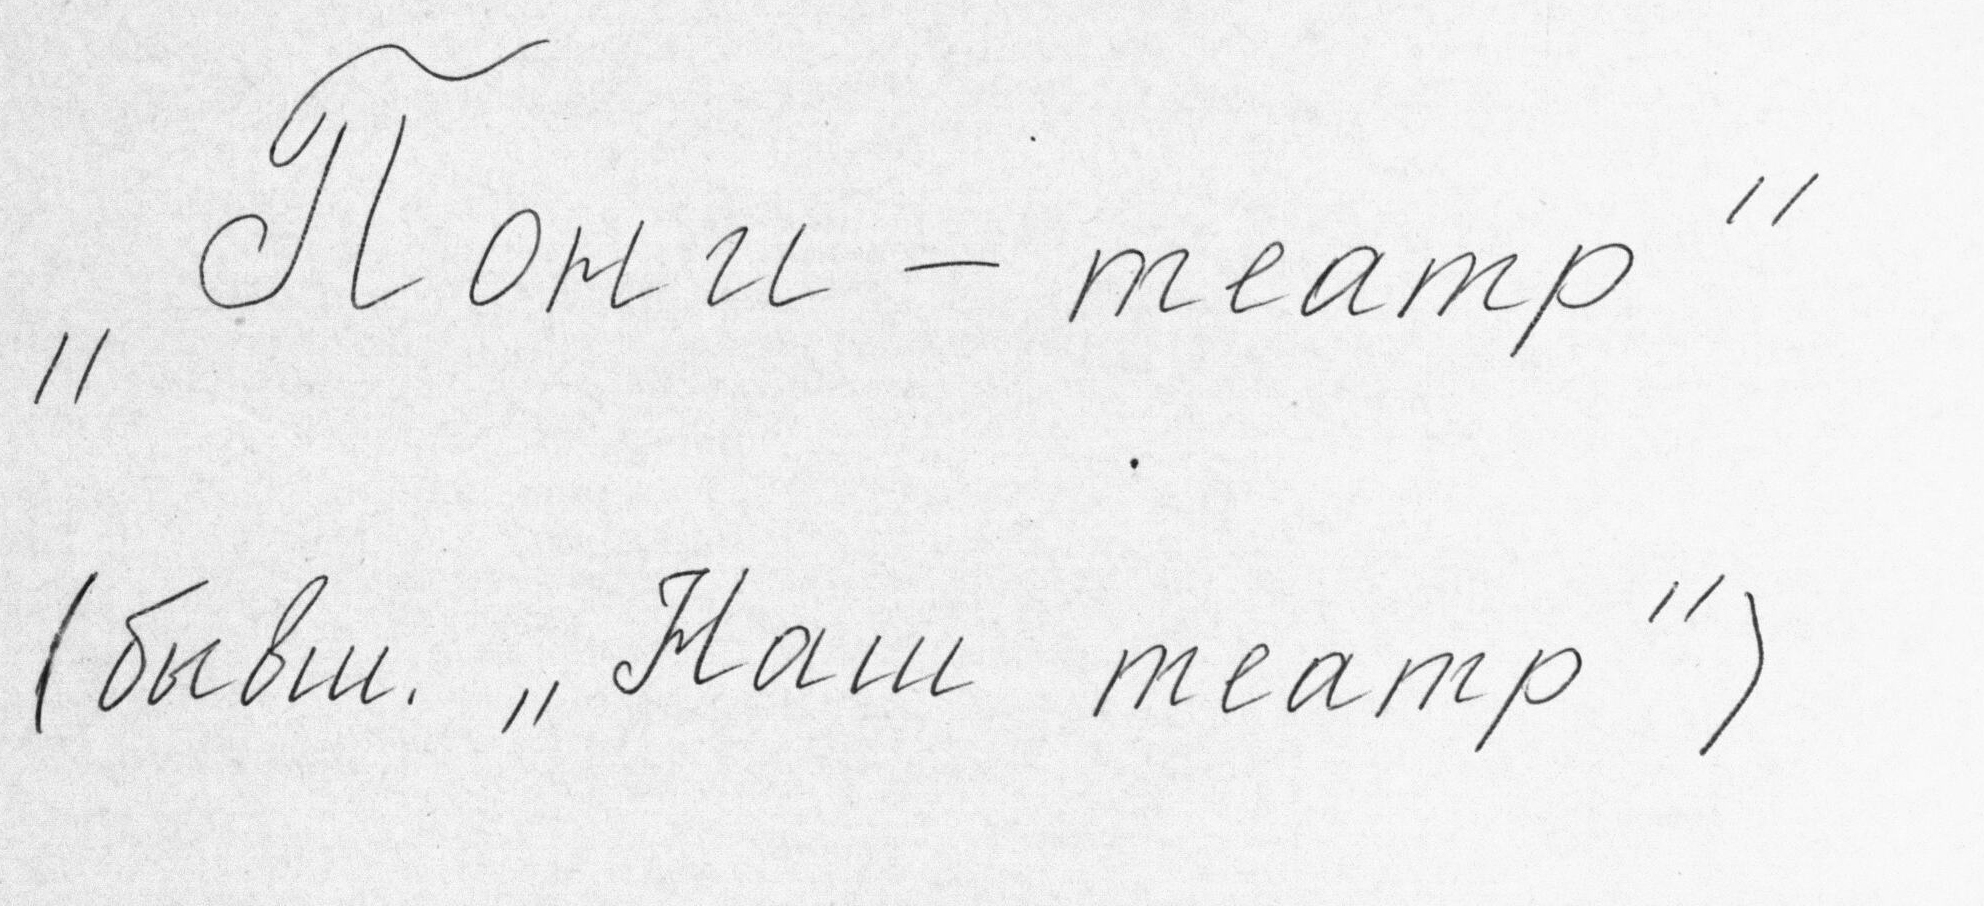 „Пони – театр"
(бывш. „Наш театр")